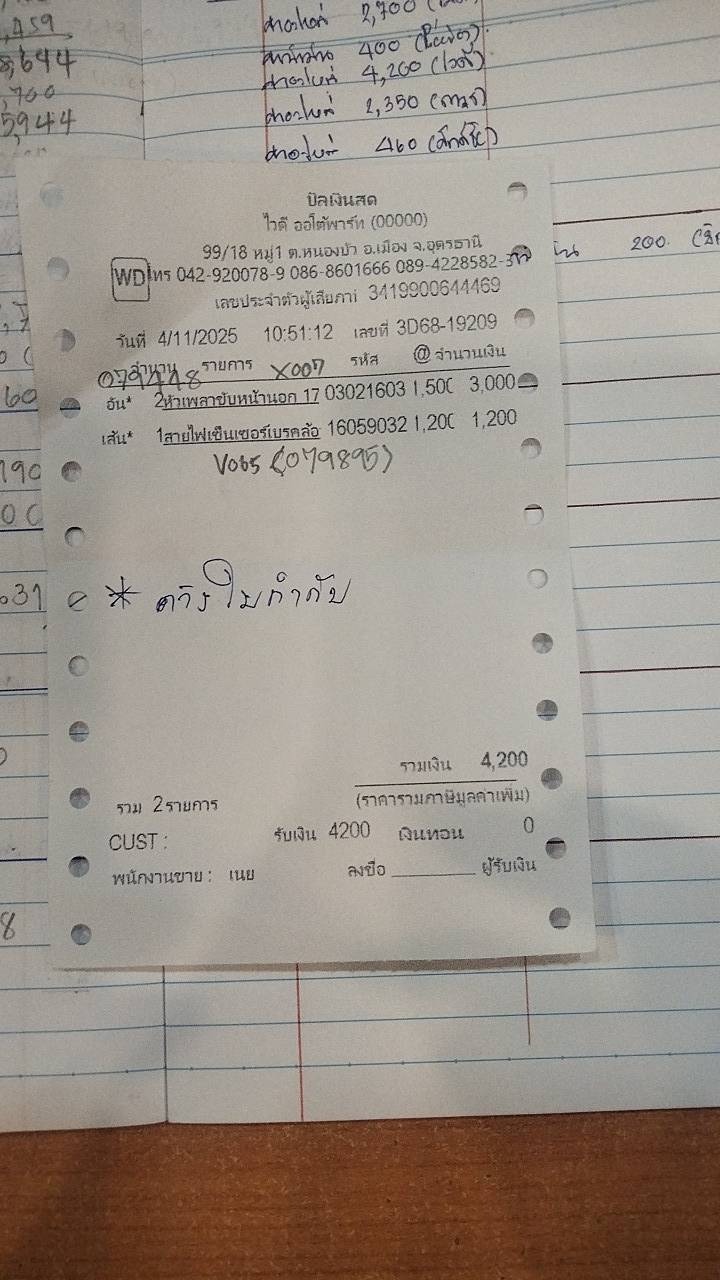 ,459
8,644
,700
5,944
2,700
400
4,200 (ไวดี)
2,350
460
200.
บิลเงินสด
ไวดี ออโต้พาร์ท (00000)
99/18 หมู่1 ต.หนองบัว อ.เมือง จ.อุดรธานี
WD โทร 042-920078-9 086-8601666 089-4228582-3
เลขประจำตัวผู้เสียภาษี 3419900644469
วันที่ 4/11/2025 10:51:12 เลขที่ 3D68-19209
จำนวน รายการ รหัส @ จำนวนเงิน
079448 X007
อัน* 2หัวเพลาขับหน้านอก 17 03021603 1,500 3,000
เส้น* 1สายไฟเซ็นเซอร์เบรคล้อ 16059032 1,200 1,200
V065 (079895)
* ใบกำกับ
รวมเงิน 4,200
รวม 2รายการ (ราคารวมภาษีมูลค่าเพิ่ม)
CUST : รับเงิน 4200 เงินทอน 0
พนักงานขาย : เนย ลงชื่อ ________ ผู้รับเงิน